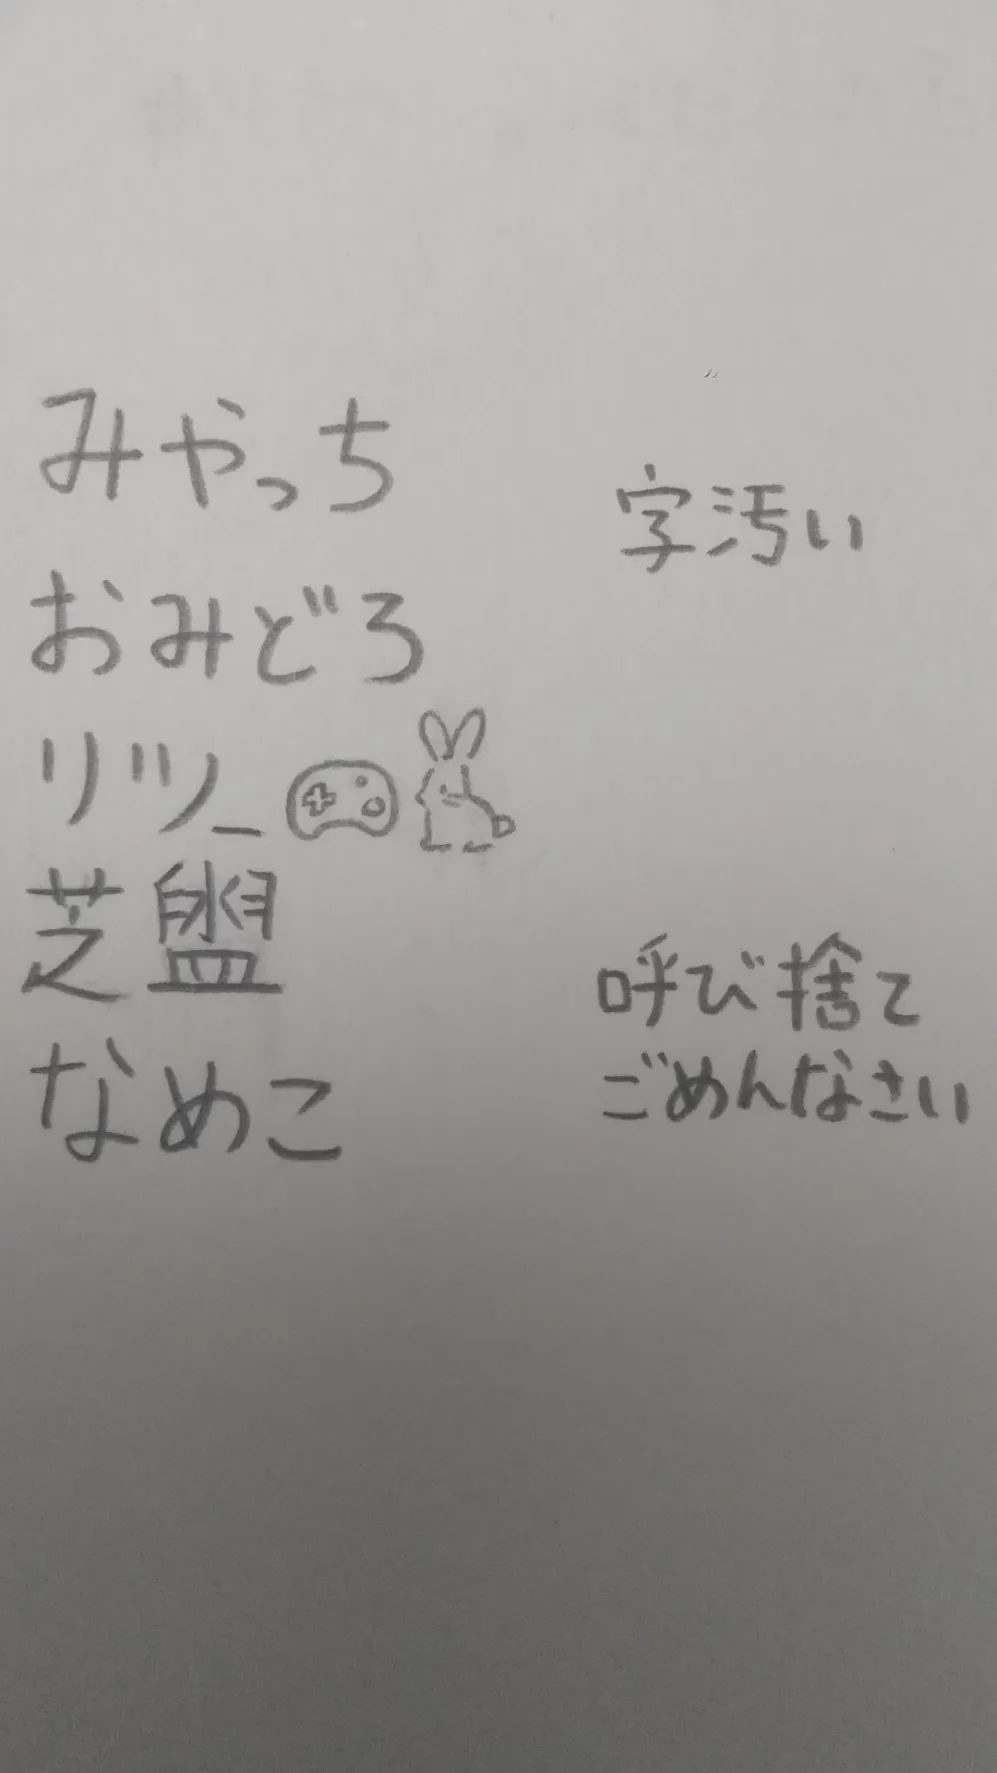 みやっち
おみどろ
リツ_
芝盥
なめこ
字汚い
呼び捨て
ごめんなさい